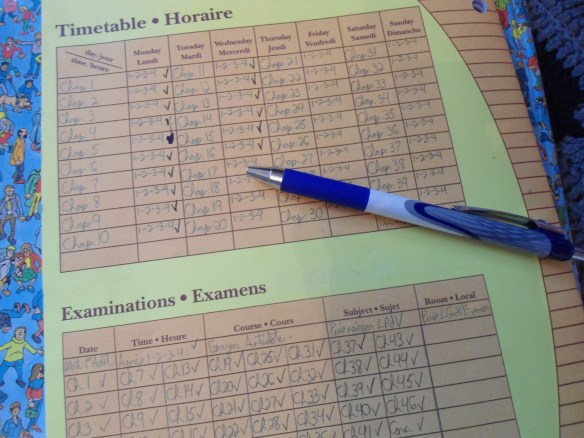 Timetable • Horaire
day/jour time/heure Monday Lundi Tuesday Mardi Wednesday Mercredi Thursday Jeudi Friday Vendredi Saturday Samedi Sunday Dimanche
Chap. 1 1-2-3-4 ✓ Chap. 11 1-2-3-4 ✓ Chap. 21 1-2-3-4 Chap. 31 1-2-3-4
Chap. 2 1-2-3-4 ✓ Chap. 12 1-2-3-4 ✓ Chap. 22 1-2-3-4 Chap. 32 1-2-3-4
Chap. 3 1-2-3-4 ✓ Chap. 13 1-2-3-4 ✓ Chap. 23 1-2-3-4 Chap. 33 1-2-3-4
Chap. 4 1-2-3-4 ✓ Chap. 14 1-2-3-4 ✓ Chap. 24 1-2-3-4 Chap. 34 1-2-3-4
Chap. 5 1-2-3-4 Chap. 15 1-2-3-4 ✓ Chap. 25 1-2-3-4 Chap. 35 1-2-3-4
Chap. 6 1-2-3-4 ✓ Chap. 16 1-2-3-4 ✓ Chap. 26 1-2-3-4 Chap. 36 1-2-3-4
Chap. 7 1-2-3-4 ✓ Chap. 17 1-2-3-4 Chap. 27 1-2-3-4 Chap. 37 1-2-3-4
Chap. 8 1-2-3-4 ✓ Chap. 18 1-2-3-4 Chap. 38
Chap. 9 1-2-3-4 ✓ Chap. 19 1-2-3-4 Chap. 39
Chap. 10 1-2-3-4 ✓ Chap. 20 1-2-3-4 Chap. 30 1-2-3-4
Examinations • Examens
Date Time • Heure Course • Cours Subject • Sujet Room • Local
1-2-3-4 ✓
Ch. 1 ✓ Ch 7 ✓ Ch 13 ✓ Ch 19 ✓ Ch 25 ✓ Ch 31 ✓ Ch. 37 ✓ Ch. 43 ✓
Ch 2 ✓ Ch 8 ✓ Ch 14 ✓ Ch 20 ✓ Ch 26 ✓ Ch 32 ✓ Ch 38 ✓ Ch. 44 ✓
Ch 3 ✓ Ch 9 ✓ Ch. 15 ✓ Ch 21 ✓ Ch 27 ✓ Ch. 33 ✓ Ch. 39 ✓ Ch. 45 ✓
Ch 28 ✓ Ch. 34 ✓ Ch. 40 ✓ Ch. 46 ✓